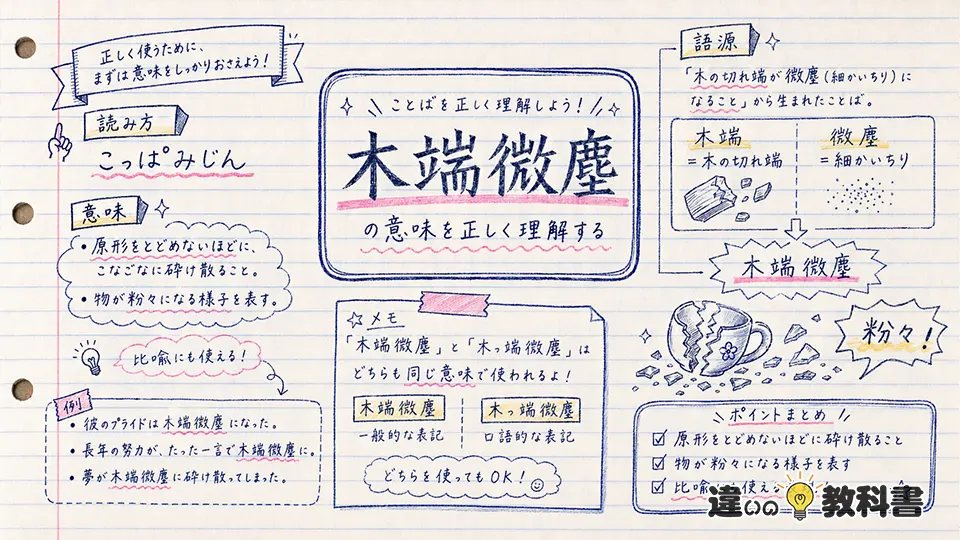 正しく使うために、
まずは意味をしっかりおさえよう!
読み方
こっぱみじん
意味
・原形をとどめないほどに、
こなごなに砕け散ること。
・物が粉々になる様子を表す。
比喩にも使える!
例
・彼のプライドは木端微塵になった。
・長年の努力が、たった一言で木端微塵に。
・夢が木端微塵に砕け散ってしまった。
ことばを正しく理解しよう!
木端微塵
の意味を正しく理解する
メモ
「木端微塵」と「木っ端微塵」は
どちらも同じ意味で使われるよ!
木端微塵
一般的な表記
木っ端微塵
口語的な表記
どちらを使ってもOK!
語源
「木の切れ端が微塵(細かいちり)に
なること」から生まれたことば。
木端
=木の切れ端
微塵
=細かいちり
木端微塵
粉々!
ポイントまとめ
原形をとどめないほどに砕け散ること
物が粉々になる様子を表す
比喩にも使え
違いの教科書